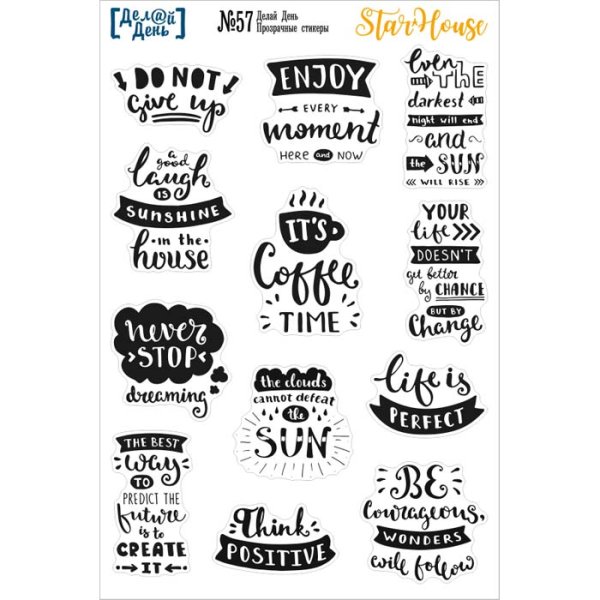 [Дел@й День]
№57 Делай День
Прозрачные стикеры
StarHouse
DO NOT
give up
ENJOY
EVERY
moment
HERE and NOW
Even THE
darkest
night will end
and
the SUN
WILL RISE
a good
laugh
IS
SUNSHINE
in the
house
IT'S
Coffee
TIME
YOUR
life
DOESN'T
get better
by CHANCE
BUT BY
Change
never
STOP
dreaming
the clouds
cannot defeat
the
SUN
life is
PERFECT
THE BEST
way
TO
PREDICT THE
future
is to
CREATE
IT
Think
POSITIVE
BE
Courageous,
WONDERS
will follow